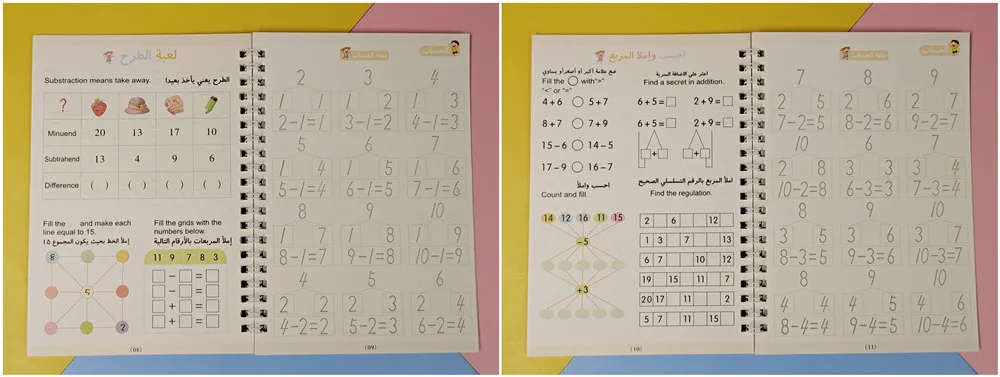 لعبة الطرح
Substraction means take away. الطرح يعني يأخذ بعيدا
?
Minuend 20 13 17 10
Subtrahend 13 4 9 6
Difference ( ) ( ) ( ) ( )
Fill the and make each
line equal to 15.
إملأ الخط بحيث يكون المجموع ١٥
8
5
2
Fill the grids with the
numbers below.
إملأ المربعات بالأرقام التالية
11 9 7 8 3
- =
- =
+ =
+ =
(08)
الحساب
2 3 4
1 1 1 2 1 3
2-1=1 3-1=2 4-1=3
5 6 7
1 4 1 5 1 6
5-1=4 6-1=5 7-1=6
8 9 10
1 7 1 8 1 9
8-1=7 9-1=8 10-1=9
4 5 6
2 2 2 3 2 4
4-2=2 5-2=3 6-2=4
(09)
احسب وإملأ المربع
ضع علامة أكبر أو أصغر أو يساوي
Fill the ○ with">"
"<" or "="
4+6 ○ 5+7
8+7 ○ 7+9
15-6 ○ 14-5
17-9 ○ 16-7
اعثر على الاضافة السرية
Find a secret in addition.
6+5= 2+9=
6+5= 2+9=
+ +
احسب وإملأ
Count and fill.
14 12 16 11 15
-5
+3
املأ المربع بالرقم التسلسلي الصحيح
Find the regulation.
2 6 12
1 3 7 13
6 7 10 12
19 15 11 7
20 17 11 2
5 7 11 15
(10)
الحساب
7 8 9
2 5 2 6 2 7
7-2=5 8-2=6 9-2=7
10 6 7
2 8 3 3 3 4
10-2=8 6-3=3 7-3=4
8 9 10
3 5 3 6 3 7
8-3=5 9-3=6 10-3=7
8 9 10
4 4 4 5 4 6
8-4=4 9-4=5 10-4=6
(11)